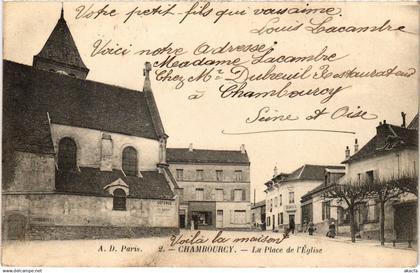 Votre petit-fils qui vous aime.
Louis Lacambre
Voici notre Adresse
Madame Lacambre
Chez Mr. Dubreuil Restaurateur
à Chambourcy
Seine et Oise
Voilà la maison
A. D. Paris. 2. - CHAMBOURCY. - La Place de l'Église